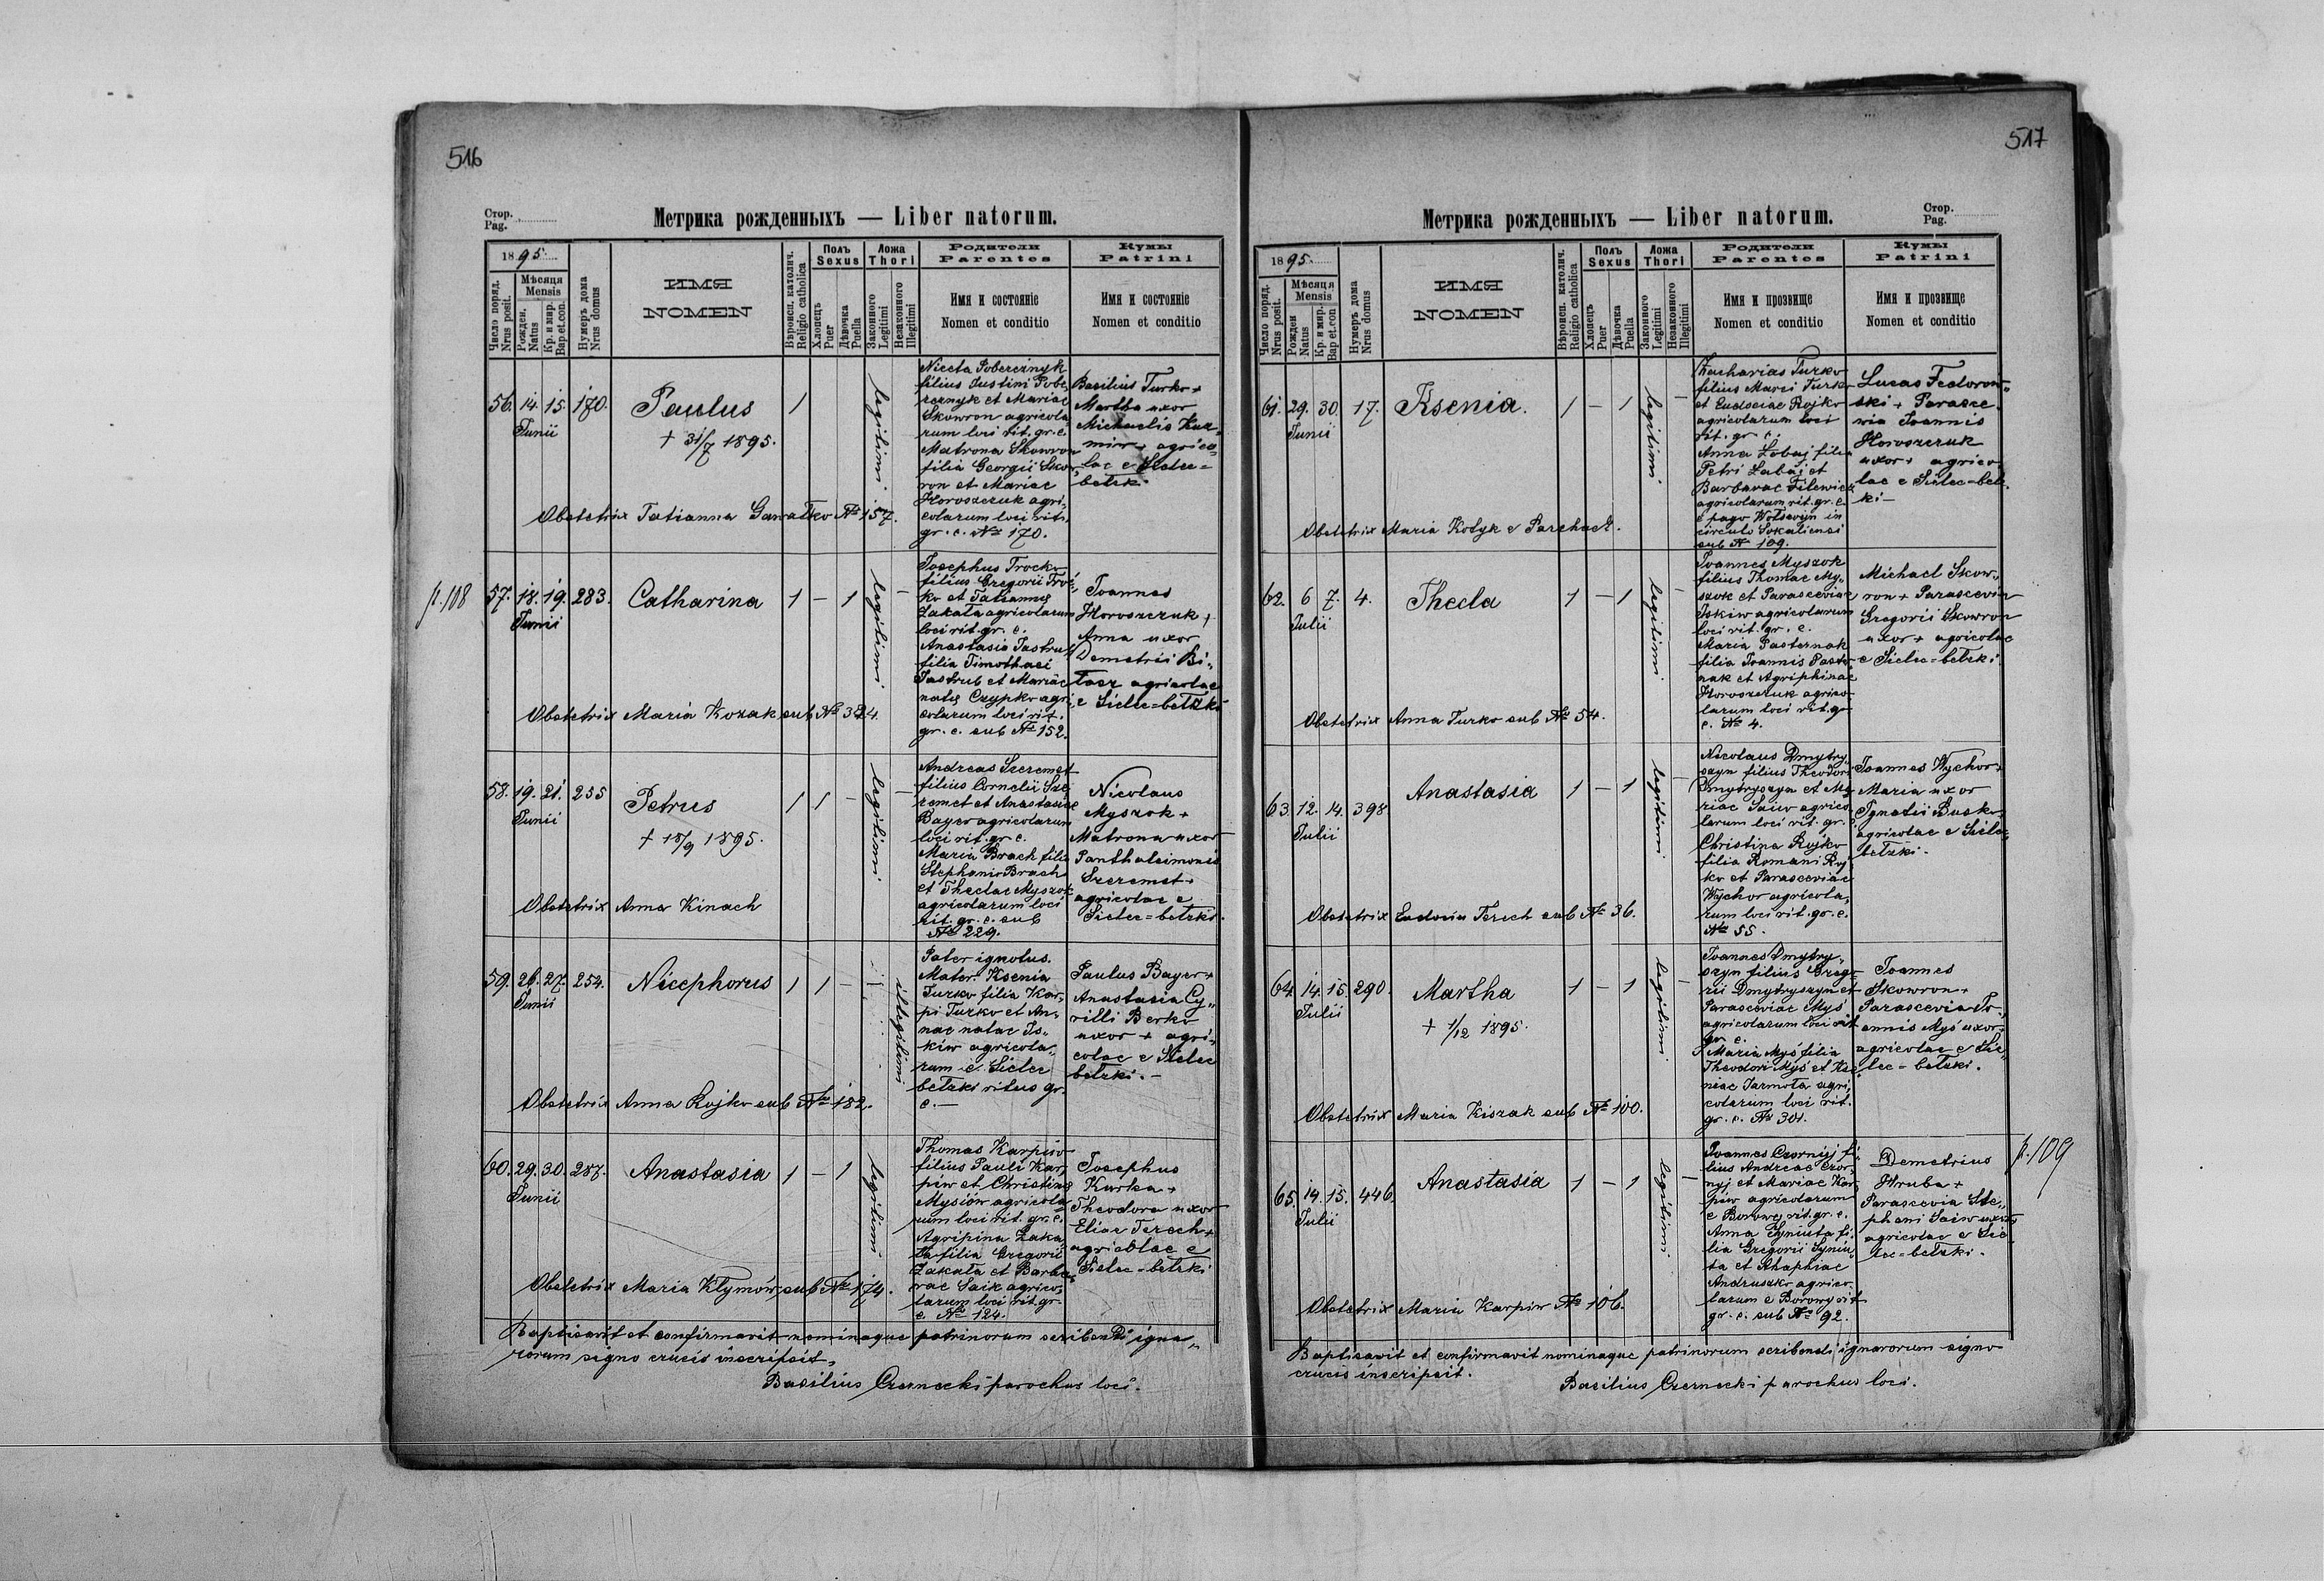 516
Стор.
Pag.
Метрика рожденныхъ — Liber natorum.
1895.
Число поряд.
Nrus posit.
Мѣсяця
Mensis
Рожден.
Natus
Кр. и мир.
Bap. et. con.
Нумеръ дома
Nrus domus
ИМЯ
NOMEN
Вѣроисп. католич.
Religio catholica
Полъ
Sexus
Хлопецъ
Puer
Дѣвочка
Puella
Ложа
Thori
Законного
Legitimi
Незаконного
Illegitimi
Родители
Parentes
Имя и состояніе
Nomen et conditio
Кумы
Patrini
Имя и состояніе
Nomen et conditio
56. 14. 15. 170. Paulus 1
Junii
+ 31/7 1895.
legitimi
Niceta Pobereznyk
filius Justini Pobe„
reznyk et Mariae
Skowron agricola„
rum loci rit. gr. c.
Matrona Skowron
filia Georgii Skow„
ron et Mariae
Horoszczuk agri„
colarum loci rit.
gr. c. № 170.
Basilius Turko +
Martha uxor
Michaelis Kuz„
miw + agrico„
lae e Sielec=
bełzki.
Obstetrix Tatianna Gawałko № 157.
p. 108
57. 18. 19. 283. Catharina 1 – 1 –
Junii
legitimi
Josephus Trocko
filius Gregorii Troc„
ko et Tatianna
Zakała agricolarum
loci rit. gr. c.
Anastasia Jastrub
filia Timothaei
Jastrub et Mariae
natae Czypko agri„
colarum loci rit.
gr. c. sub № 152.
Joannes
Horoszczuk +
Anna uxor
Demetrii Bi„
łasz agricolae
e Sielec=bełzki
Obstetrix Maria Kozak sub № 324.
58. 19. 21. 255 Petrus 1 1 – –
Junii
+ 18/9 1895.
legitimi
Andreas Szeremet
filius Cornelii Sze„
remet et Anastasiae
Bayer agricolarum
loci rit. gr. c.
Maria Brach filia
Stephani Brach
et Theclae Myszok
agricolarum loci
rit. gr. c. sub
№ 229.
Nicolaus
Myszok +
Matrona uxor
Panthaleimonis
Szeremet +
agricolae e
Sielec=bełzki.
Obstetrix Anna Kinach
59. 26. 27. 254. Nicephorus 1 1 –
Junii
illegitimi
Pater ignotus.
Mater: Ksenia
Turko filia Kar„
pi Turko et An„
nae natae Is„
kiw agricola„
rum e Sielec
bełzki ritus gr.
c. —
Paulus Bayer +
Anastasia Cy„
rilli Berko
uxor + agri„
colae e Sielec
bełzki. —
Obstetrix Anna Rojko sub № 182.
60. 29. 30. 287. Anastasia 1 – 1
Junii
legitimi
Thomas Karpiw
filius Pauli Kar„
piw et Christina
Mysiów agricola„
rum loci rit. gr. c.
Agripina Zaka„
ła filia Gregorii
Zakała et Barba„
rae Saik agrico„
larum loci rit. gr.
c. № 124.
Josephus
Kurka +
Theodora uxor
Eliae Terech +
agricolae e
Sielec=bełzki
Obstetrix Maria Klymów sub № 174.
Baptisavit et confirmavit nominaque patrinorum scribendi igna„
rorum signo crucis inscripsit.
Basilius Czernecki parochus loci.
517
Стор.
Pag.
Метрика рожденныхъ — Liber natorum.
1895.
Число поряд.
Nrus posit.
Мѣсяця
Mensis
Рожден
Natus
Кр. и мир.
Bap et. con
Нумеръ дома
Nrus domus
ИМЯ
NOMEN
Вѣроисп. католич.
Religio catholica
Полъ
Sexus
Хлопецъ
Puer
Дѣвочка
Puella
Ложа
Thori
Законного
Legitimi
Незаконного
Illegitimi
Родители
Parentes
Имя и прозвище
Nomen et conditio
Кумы
Patrini
Имя и прозвище
Nomen et conditio
61. 29. 30. 17. Ksenia. 1 – 1 –
Junii
legitimi
Zhacharias Turko
filius Marci Turko
et Eudociae Rojko
agricolarum loci
rit. gr. c.
Anna Łobaj filia
Petri Łabaj et
Barbarae Filewicz
agricolarum rit. gr. c.
e pago Wolswyn in
circulo Sokaliensi
sub № 109.
Lucas Fedorow„
ski + Parasce„
wia Joannis
Horoszczuk
uxor + agrico„
lae e Sielec=beł„
ki —
Obstetrix Maria Kotyk e Parchacz.
62. 6 7. 4. Thecla 1 – 1
Julii
legitimi
Joannes Myszok
filius Thomae My„
szok et Parasceviae
Iskiw agricolarum
loci rit. gr. c.
Maria Pasternak
filia Joannis Paster„
nak et Agriphinae
Horoszczuk agrico„
larum loci rit. gr.
c. № 4.
Michael Skow„
ron + Parascevia
Gregorii Skowron
uxor + agricolae
e Sielec=bełzki
Obstetrix Anna Turko sub № 54.
63. 12. 14. 398. Anastasia 1 – 1 –
Julii
legitimi
Nicolaus Dmytry„
szyn filius Theodori
Dmytryszyn et Ma„
riae Saiw agrico„
larum loci rit. gr. c.
Christina Rojko
filia Romani Roj„
ko et Parasceviae
Wychor agricola„
rum loci rit. gr. c.
№ 55.
Joannes Wychor +
Maria uxor
Ignatii Busko +
agricolae e Siele„
bełzki.
Obstetrix Eudocia Terech sub № 36.
64. 14. 15. 290. Martha 1 – 1 –
Julii
+ 1/12 1895.
legitimi
Joannes Dmytry„
szyn filius Grego„
rii Dmytryszyn et
Parasceviae Myś
agricolarum loci rit.
gr. c.
Maria Myś filia
Theodori Myś et Kse„
niae Jarmoła agri„
colarum loci rit.
gr. c. № 301.
Joannes
Skowron +
Parascevia Jo„
annis Myś uxor +
agricolae e Sie„
lec=bełzki.
Obstetrix Maria Kiszak sub № 100.
p. 109
65. 14. 15. 446 Anastasia 1 – 1 –
Julii
legitimi
Joannes Czornij fi„
lius Andreae Czor„
nyj et Mariae Kar„
piw agricolarum
e Borowe rit. gr. c.
Anna Syniuta fi„
lia Gregorii Syniu„
ta et Rhaphiae
Andruszko agrico„
larum e Borowy rit
gr. c. sub № 92.
Demetrius
Hruba +
Parascevia Ste„
phani Saiw uxor +
agricolae e Sie„
lec=bełzki.
Obstetrix Maria Karpiw № 106.
Baptisavit et confirmavit nominaque patrinorum scribendi ignarorum signo
crucis inscripsit.
Basilius Czernecki parochus loci.